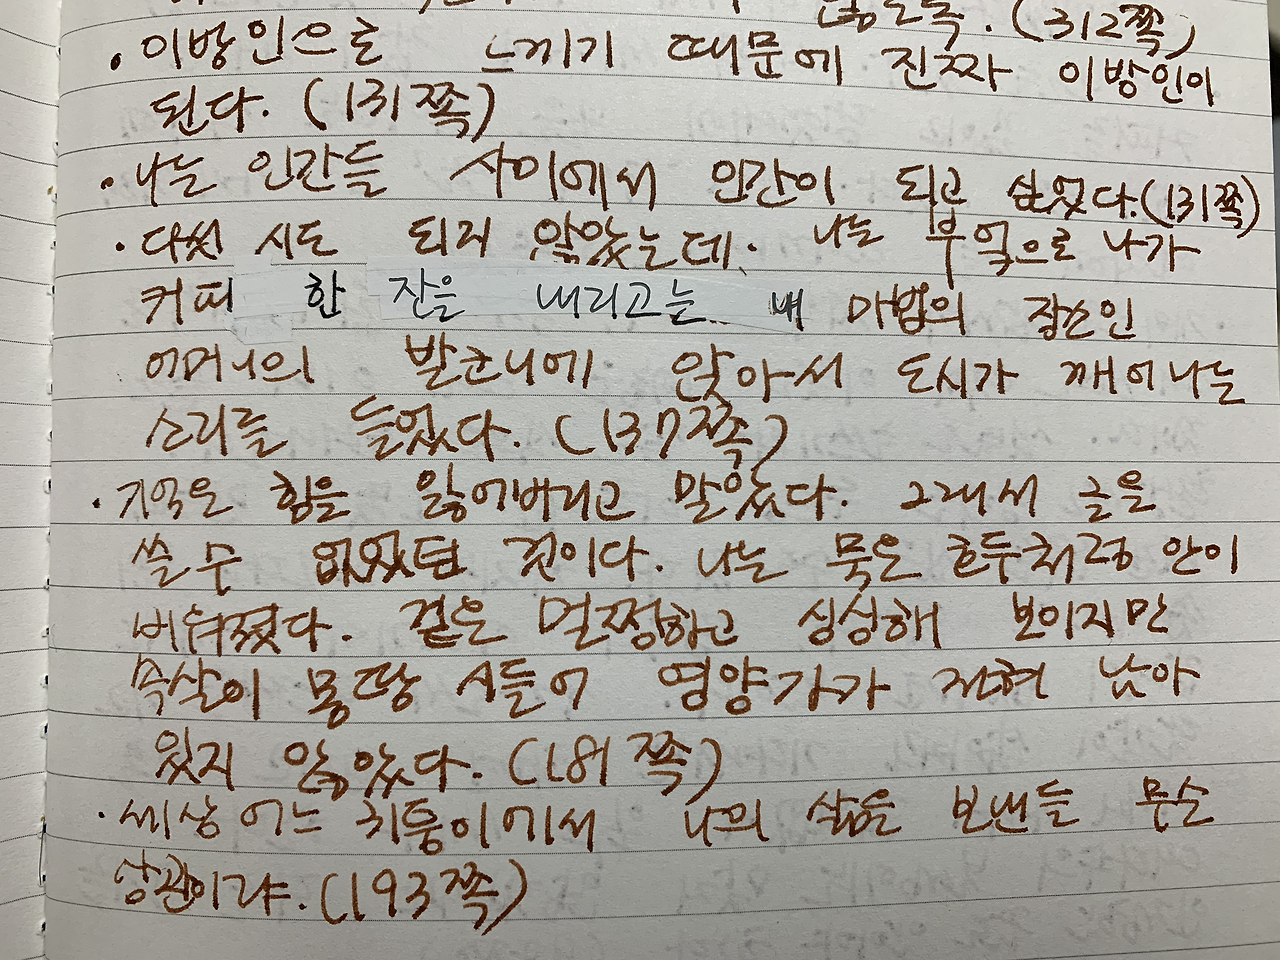 (312쪽)
· 이방인으로 느끼기 때문에 진짜 이방인이
된다. (131쪽)
· 나는 인간들 사이에서 인간이 되고 싶었다.(131쪽)
· 다섯 시도 되지 않았는데. 나는 부엌으로 나가
커피 한 잔을 내리고는 내 마법의 장소인
어머니의 발코니에 앉아서 도시가 깨어나는
소리를 들었다. (137쪽)
· 기억은 힘을 잃어버리고 말았다. 그래서 글을
쓸 수 없었던 것이다. 나는 묵은 호두처럼 안이
비워졌다. 겉은 멀쩡하고 싱싱해 보이지만
속살이 몽땅 시들어 영양가가 전혀 남아
있지 않았다. (181쪽)
· 세상 어느 귀퉁이에서 나의 삶을 보낸들 무슨
상관이랴. (193쪽)